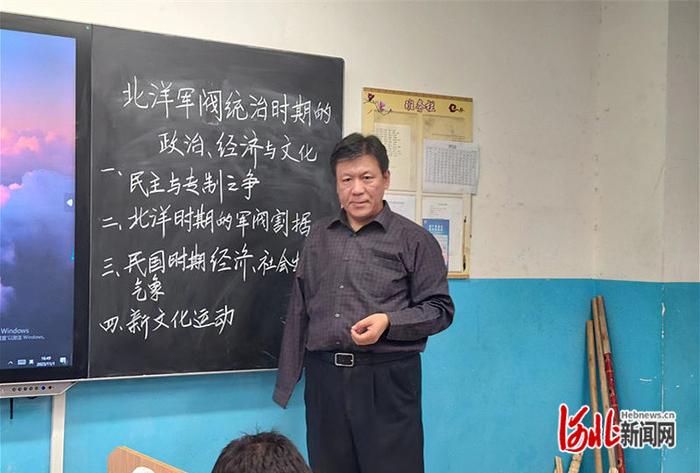 北洋军阀统治时期的
政治、经济与文化
一、
民主与专制之争
二、北洋时期的军阀割据
三、民国时期经济、社会生
气象
四、新文化运动
班务栏
Windows
16:49
2023/11/1
Hebnews.cn
河北新闻网